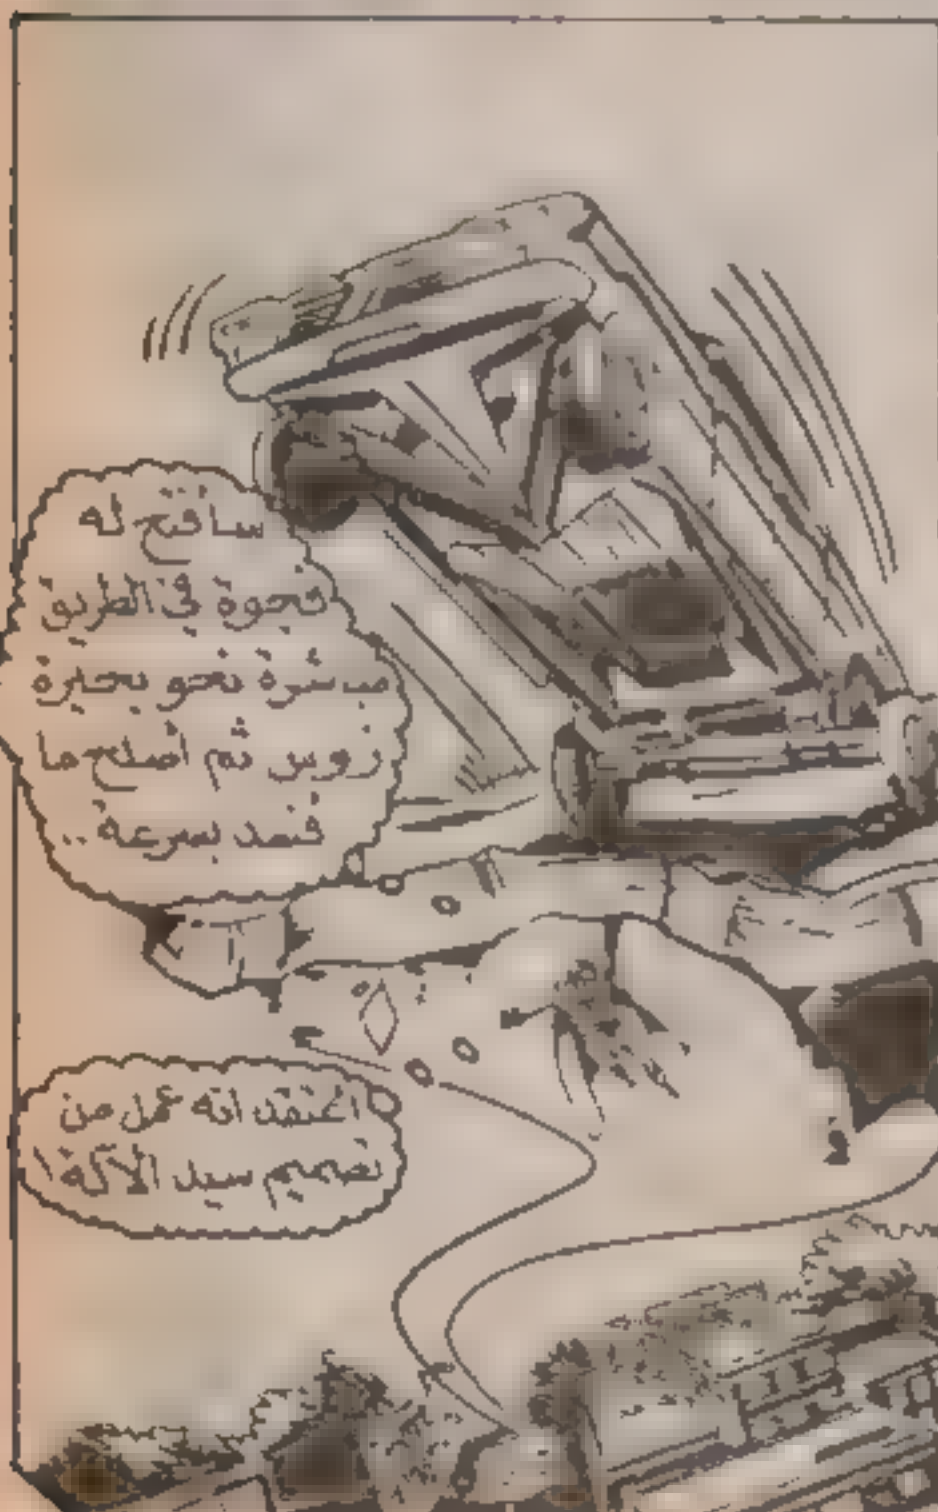 سافتح له
فجوة في الطريق
مباشرة نحو بحيرة
زوس ثم اصلح ما
فسد بسرعة..
اعتقد انه عمل من
تصميم سيد الآلة!